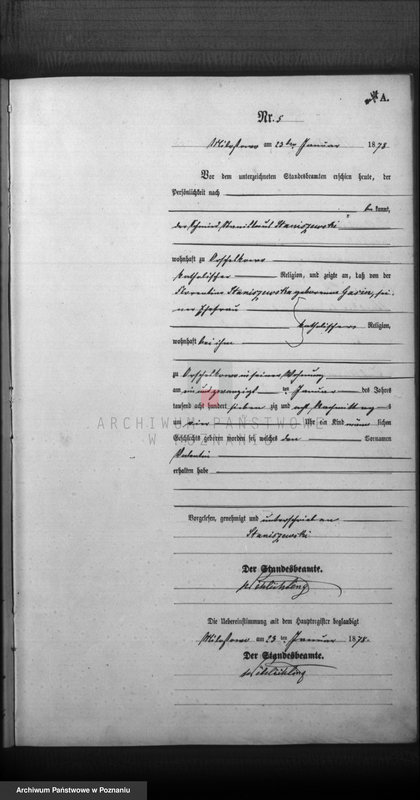 A.
Nr. 5
Miloslawo am 23ten Januar 1878
Vor dem unterzeichneten Standesbeamten erschien heute, der
Persönlichkeit nach
bekannt,
der Schmied Stanislaus Staniszewski
wohnhaft zu
katholischer Religion, und zeigte an, daß von der
Florentine Staniszewska geborenen Gasin, sei-
ner Ehefrau
katholischer Religion,
wohnhaft bei ihm
zu in seiner Wohnung
am ein und zwanzigsten Januar des Jahres
tausend acht hundert sieben zig und acht Nachmittags
um vier Uhr ein Kind männlichen
Geschlechts geboren worden sei, welches den Vornamen
Valentin
erhalten habe
Vorgelesen, genehmigt und unterschrieben
Staniszewski
Der Standesbeamte.
Die Uebereinstimmung mit dem Hauptregister beglaubigt
am 23ten Januar 1878
Der Standesbeamte.
ARCHIWUM PAŃSTWOWE
W POZNANIU
Archiwum Państwowe w Poznaniu